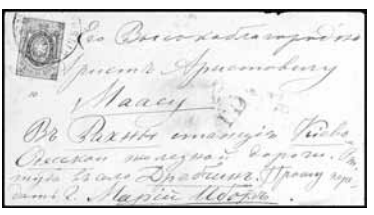 Его Высокоблагородію
Аристу Аристовичу
Маасу
Въ Рахны станція Кіево
Одесской желѣзной дороги. От
туда въ село Прошу пере
дать г. Марій